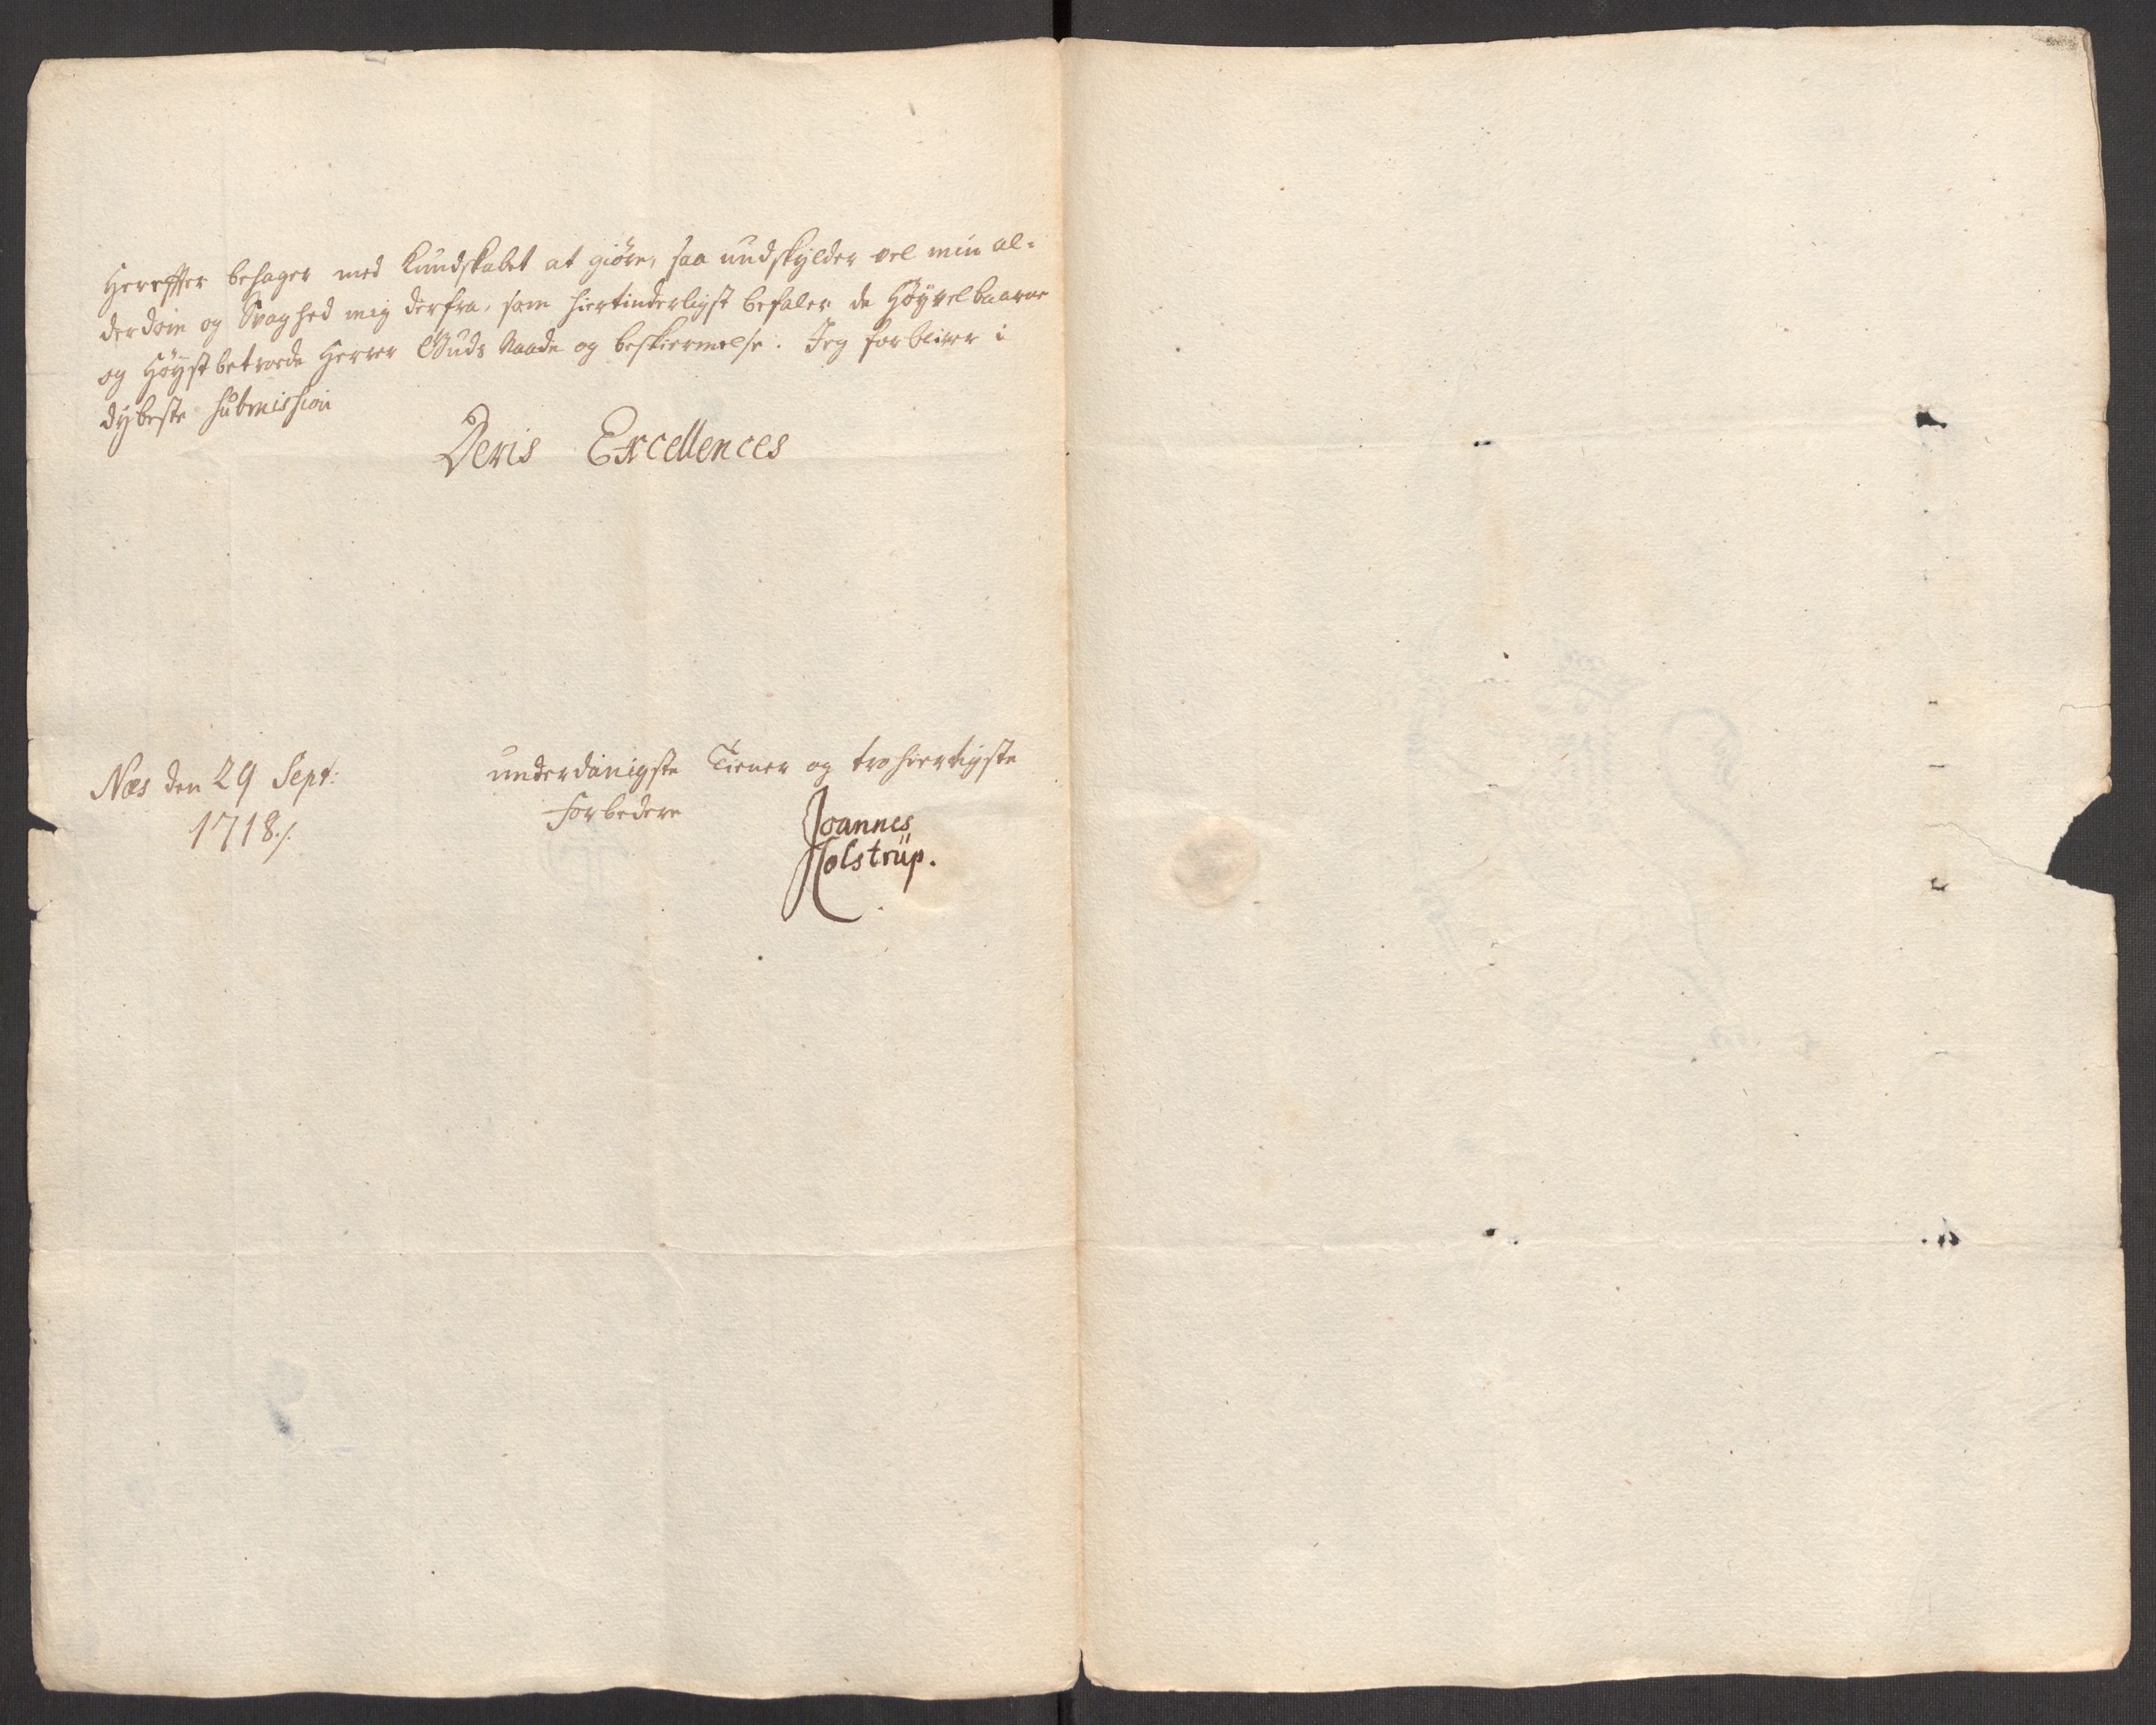 Hereffter behager med Kundskabet at giöre, saa undskylder vel min al-
derdom og Svaghed mig derfra, som hiertinderligst befaler de Höyvelbaarne
og Höystbetroede Herrer Guds Naade og beskiermelse. Jeg forbliver i
dybeste submission
Deris Excellences
Næs den 29 Sept:
1718./.
underdanigste Tiener og trohiertigste
forbedere
Joannes
Holstrüp.